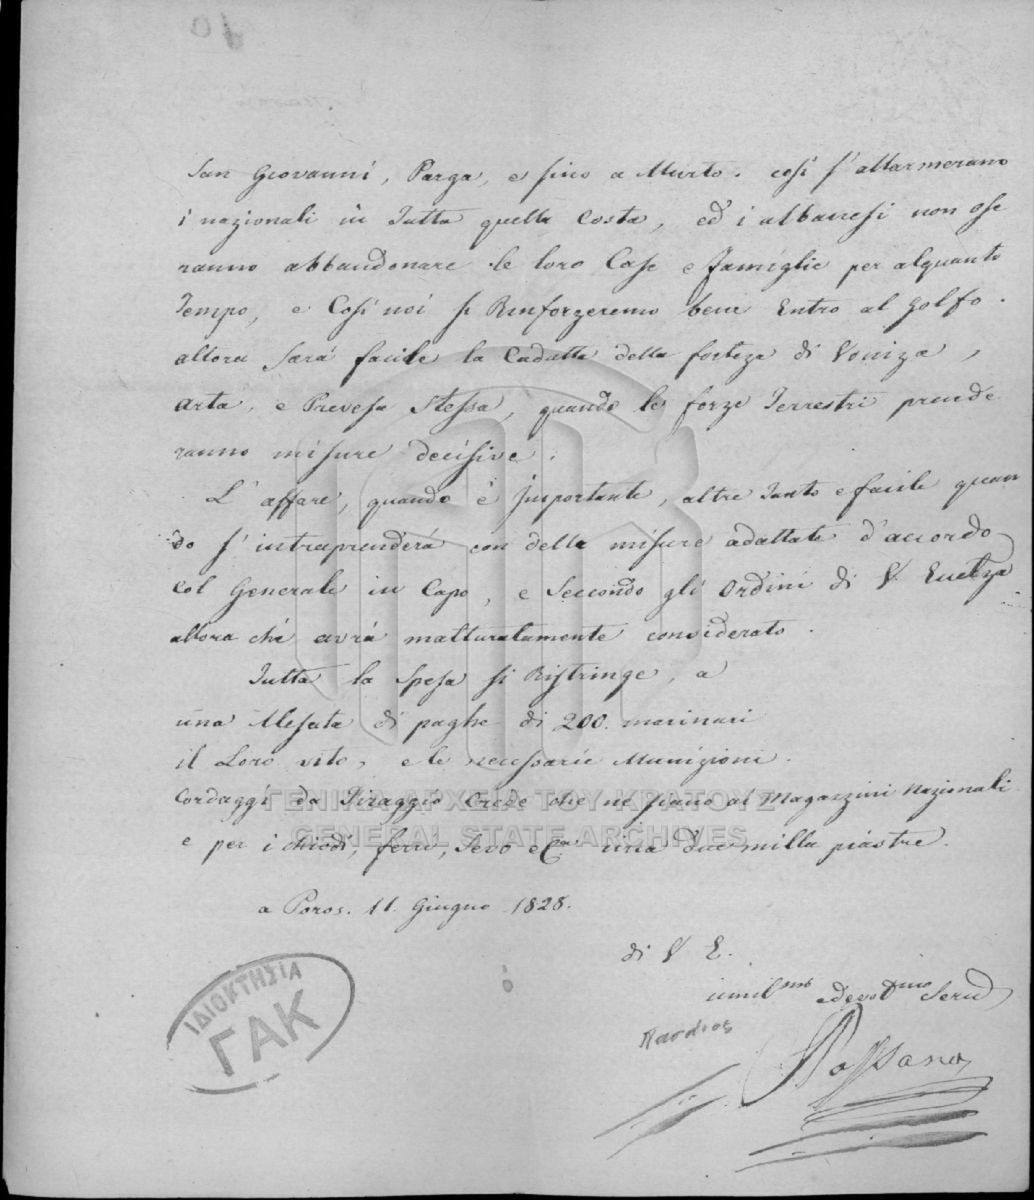 San Giovanni, Parga, e fino a Murto. così s'allarmerano
i nazionali in Tutta quella Costa, ed i albanesi non ose
ranno abbandonare le loro Case e famiglie per alquanto
Tempo, e Così noi si Rinforzeremo bene Entro al Golfo.
allora sarà facile la Cadutta della forteza di Voniza,
Arta, e Prevesa Stessa, quando le forze Terrestri prende
ranno misure decisive.
L'affare, quando è Importante, altre Tanto e facile quan
do s'intraprenderà con delle misure adattate d'accordo
Col Generale in Capo, e Seccondo gli Ordini di V. Eccelza
allora chè avrà matturatamente considerato.
Tutta la Spesa si Ristringe, a
una Mesata di paghe di 200. marinari
il Loro vito, e le necessarie Munizioni.
Cordaggi da Tiraggio Crede che ne siano ai Magazzini Nazionali
e per i chiodi, ferro, Sevo e Ca una due milla piastre.
a Poros. 11. Giugno 1828.
di V E.
umilmo e devotmo Servo
Passano
ΓΕΝΙΚΑ ΑΡΧΕΙΑ ΤΟΥ ΚΡΑΤΟΥΣ
GENERAL STATE ARCHIVES
ΙΔΙΟΚΤΗΣΙΑ
ΓΑΚ